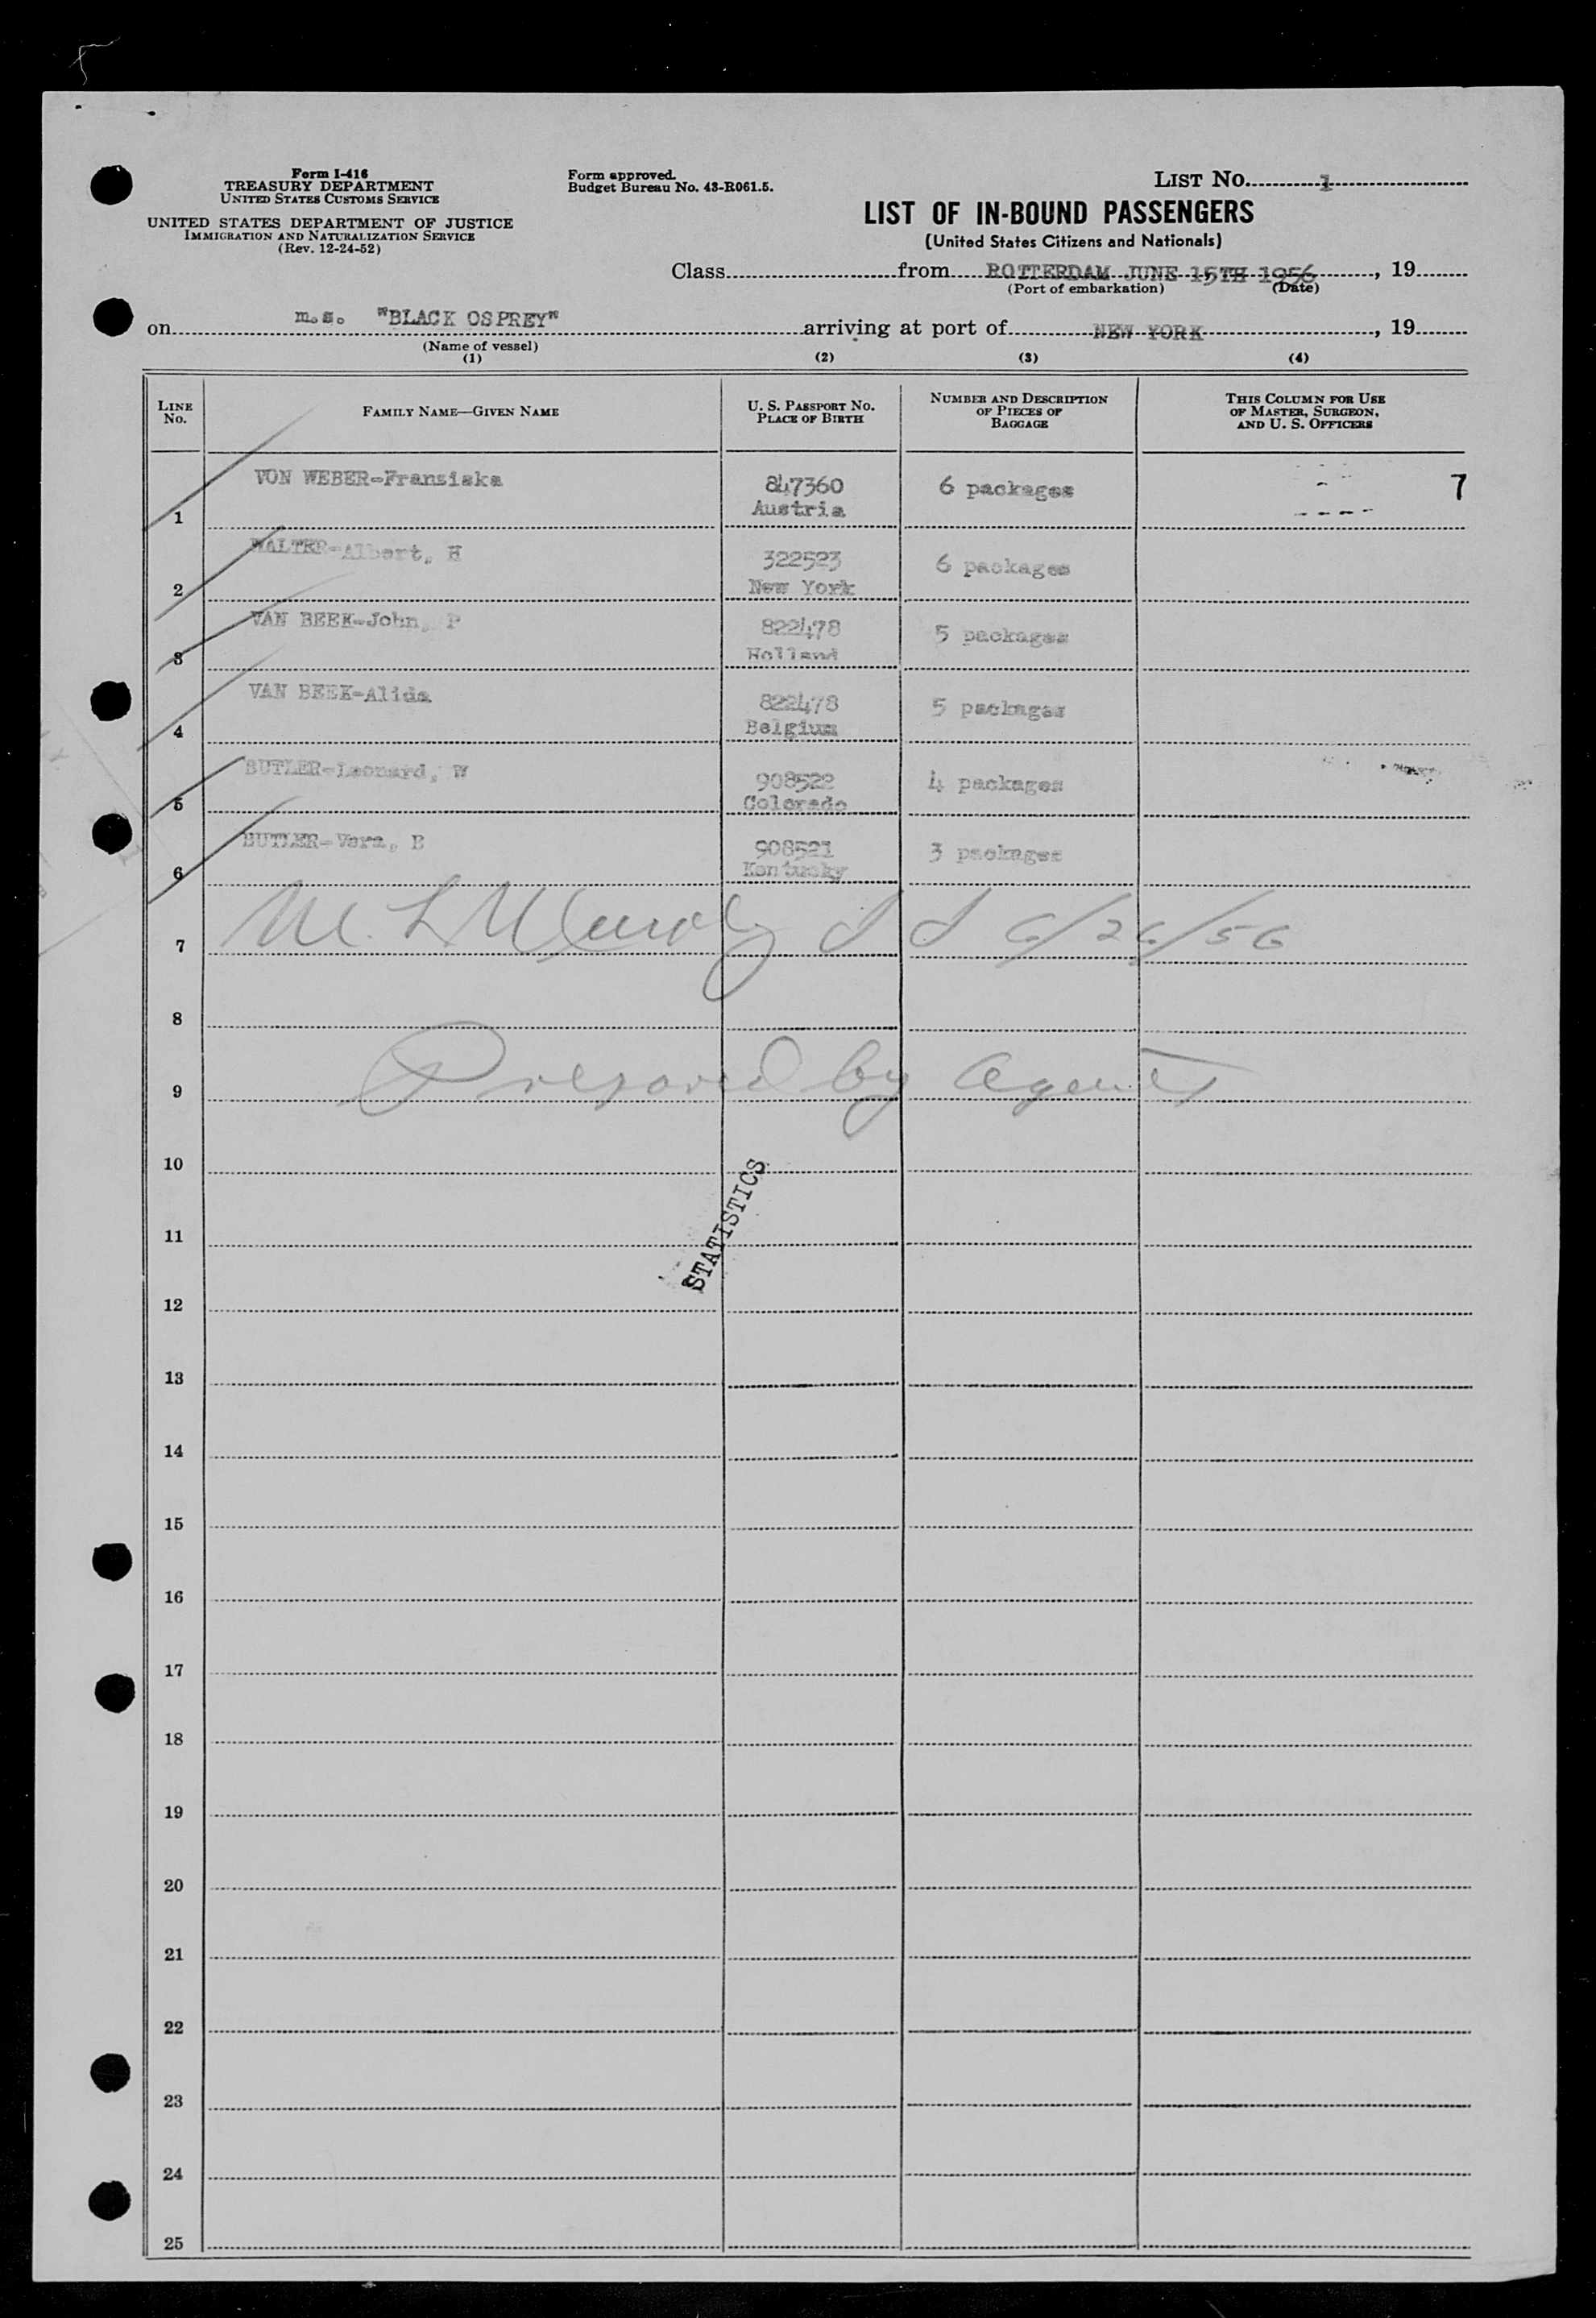 Form I-416
TREASURY DEPARTMENT
UNITED STATES CUSTOMS SERVICE
UNITED STATES DEPARTMENT OF JUSTICE
IMMIGRATION AND NATURALIZATION SERVICE
(Rev. 12-24-52)
Form approved.
Budget Bureau No. 43-R061.5.
LIST No. 1
LIST OF IN-BOUND PASSENGERS
(United States Citizens and Nationals)
Class from ROTTERDAM JUNE 15TH 1956, 19
(Port of embarkation) (Date)
on m.s. "BLACK OSPREY" arriving at port of NEW YORK, 19
(Name of vessel)
(1) (2) (3) (4)
LINE No. FAMILY NAME—GIVEN NAME U. S. PASSPORT NO. PLACE OF BIRTH NUMBER AND DESCRIPTION OF PIECES OF BAGGAGE THIS COLUMN FOR USE OF MASTER, SURGEON, AND U. S. OFFICERS
1 VON WEBER-Fransiska 847360 Austria 6 packages 7
2 WALTER-Albert, H 322523 New York 6 packages
3 VAN BEEK-John, P 822478 Holland 5 packages
4 VAN BEEK-Alida 822478 Belgium 5 packages
5 BUTLER-Leonard, W 908522 Colorado 4 packages
6 BUTLER-Vera, B 908521 Kentucky 3 packages
7 M. L. 6/26/56
8
9 Prepared by Agents
10
STATISTICS
11
12
13
14
15
16
17
18
19
20
21
22
23
24
25